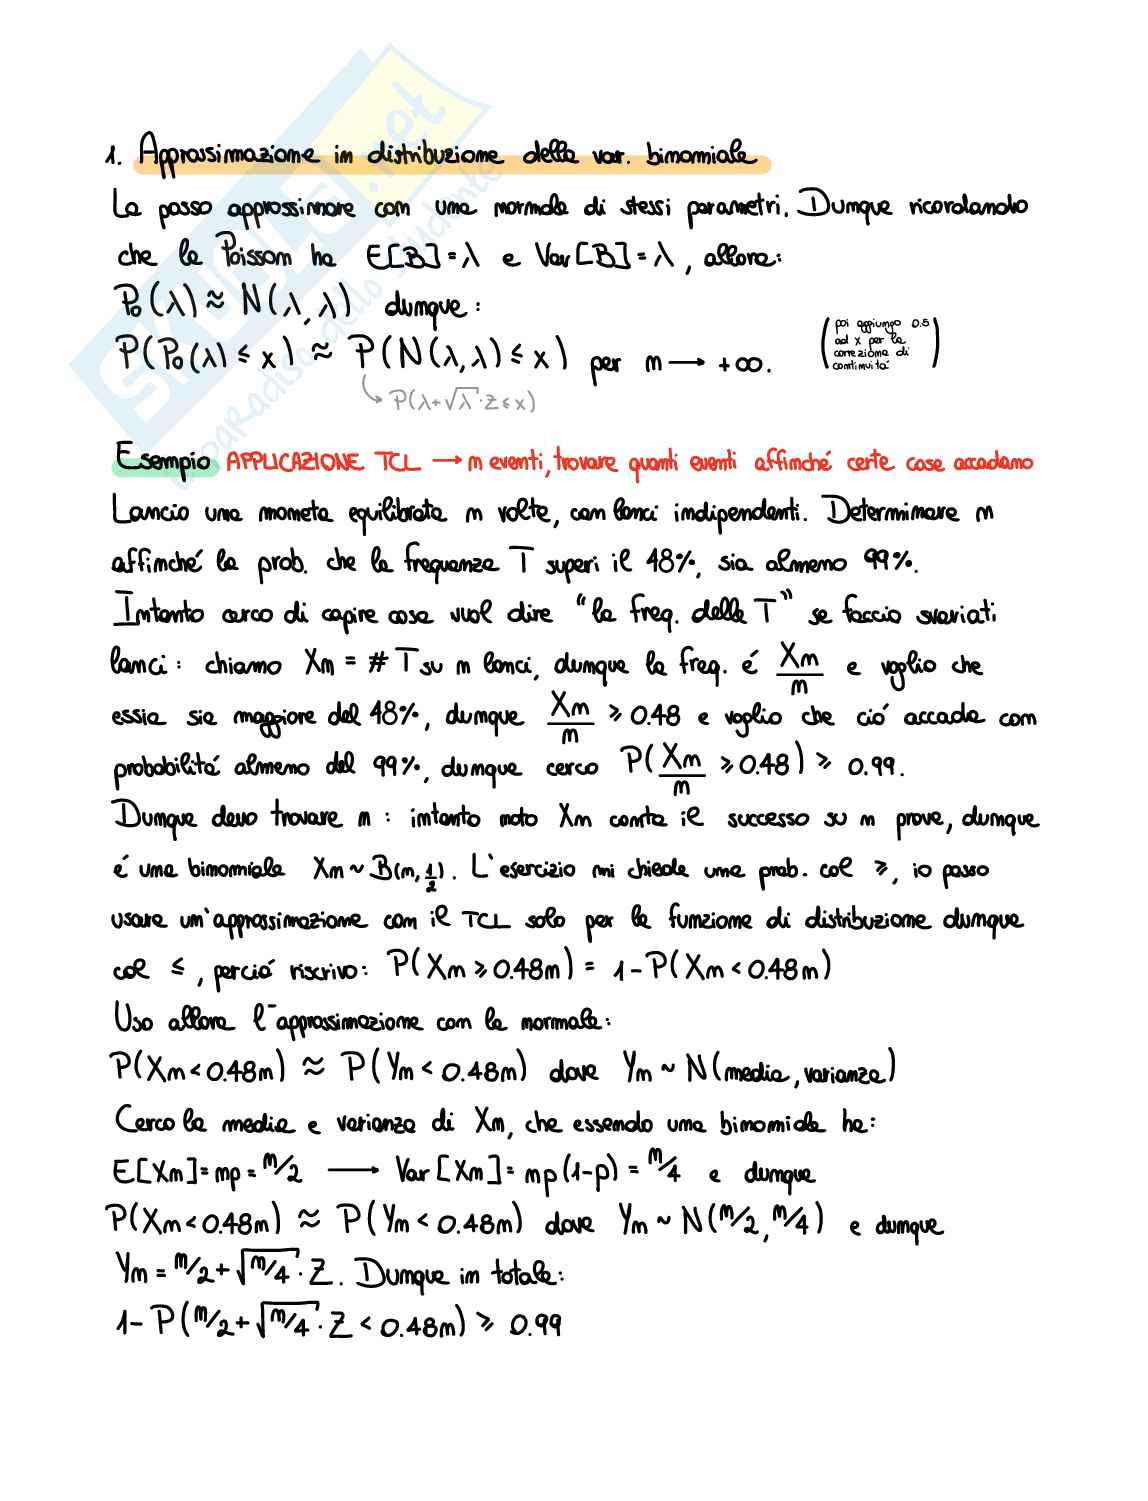 1. Approssimazione in distribuzione della var. binomiale
La posso approssimare con una normale di stessi parametri. Dunque ricordando
che la Poisson ha E[B]=λ e Var[B]=λ, allora:
Po(λ)≈N(λ,λ) dunque:
P(Po(λ)≤x)≈P(N(λ,λ)≤x) per n→+∞.
(poi aggiungo 0.5
ad x per la
correzione di
continuitá)
↳P(λ+√λ·Z≤x)
Esempio APPLICAZIONE TCL → n eventi, trovare quanti eventi affinché certe cose accadano
Lancio una moneta equilibrata n volte, con lanci indipendenti. Determinare n
affinché la prob. che la frequenza T superi il 48%, sia almeno 99%.
Intanto cerco di capire cosa vuol dire "la freq. delle T" se faccio svariati
lanci: chiamo Xn = # T su n lanci, dunque la freq. é Xn/n e voglio che
essia sia maggiore del 48%, dunque Xn/n ≥ 0.48 e voglio che ció accada con
probabilitá almeno del 99%, dunque cerco P(Xn/n ≥ 0.48) ≥ 0.99.
Dunque devo trovare n: intanto noto Xn conta il successo su n prove, dunque
é una binomiale Xn ~ B(n,1/2). L'esercizio mi chiede una prob. col ≥, io posso
usare un'approssimazione con il TCL solo per la funzione di distribuzione dunque
col ≤, perció riscrivo: P(Xn ≥ 0.48n) = 1-P(Xn < 0.48n)
Uso allora l'approssimazione con la normale:
P(Xn < 0.48n) ≈ P(Yn < 0.48n) dove Yn ~ N(media, varianza)
Cerco la media e varianza di Xn, che essendo una binomiale ha:
E[Xn]=np=n/2 → Var[Xn]=np(1-p)=n/4 e dunque
P(Xn<0.48n) ≈ P(Yn<0.48n) dove Yn ~ N(n/2, n/4) e dunque
Yn = n/2+√n/4·Z. Dunque in totale:
1-P(n/2+√n/4·Z < 0.48n) ≥ 0.99
SKUOLA.net
il paradiso dello studente